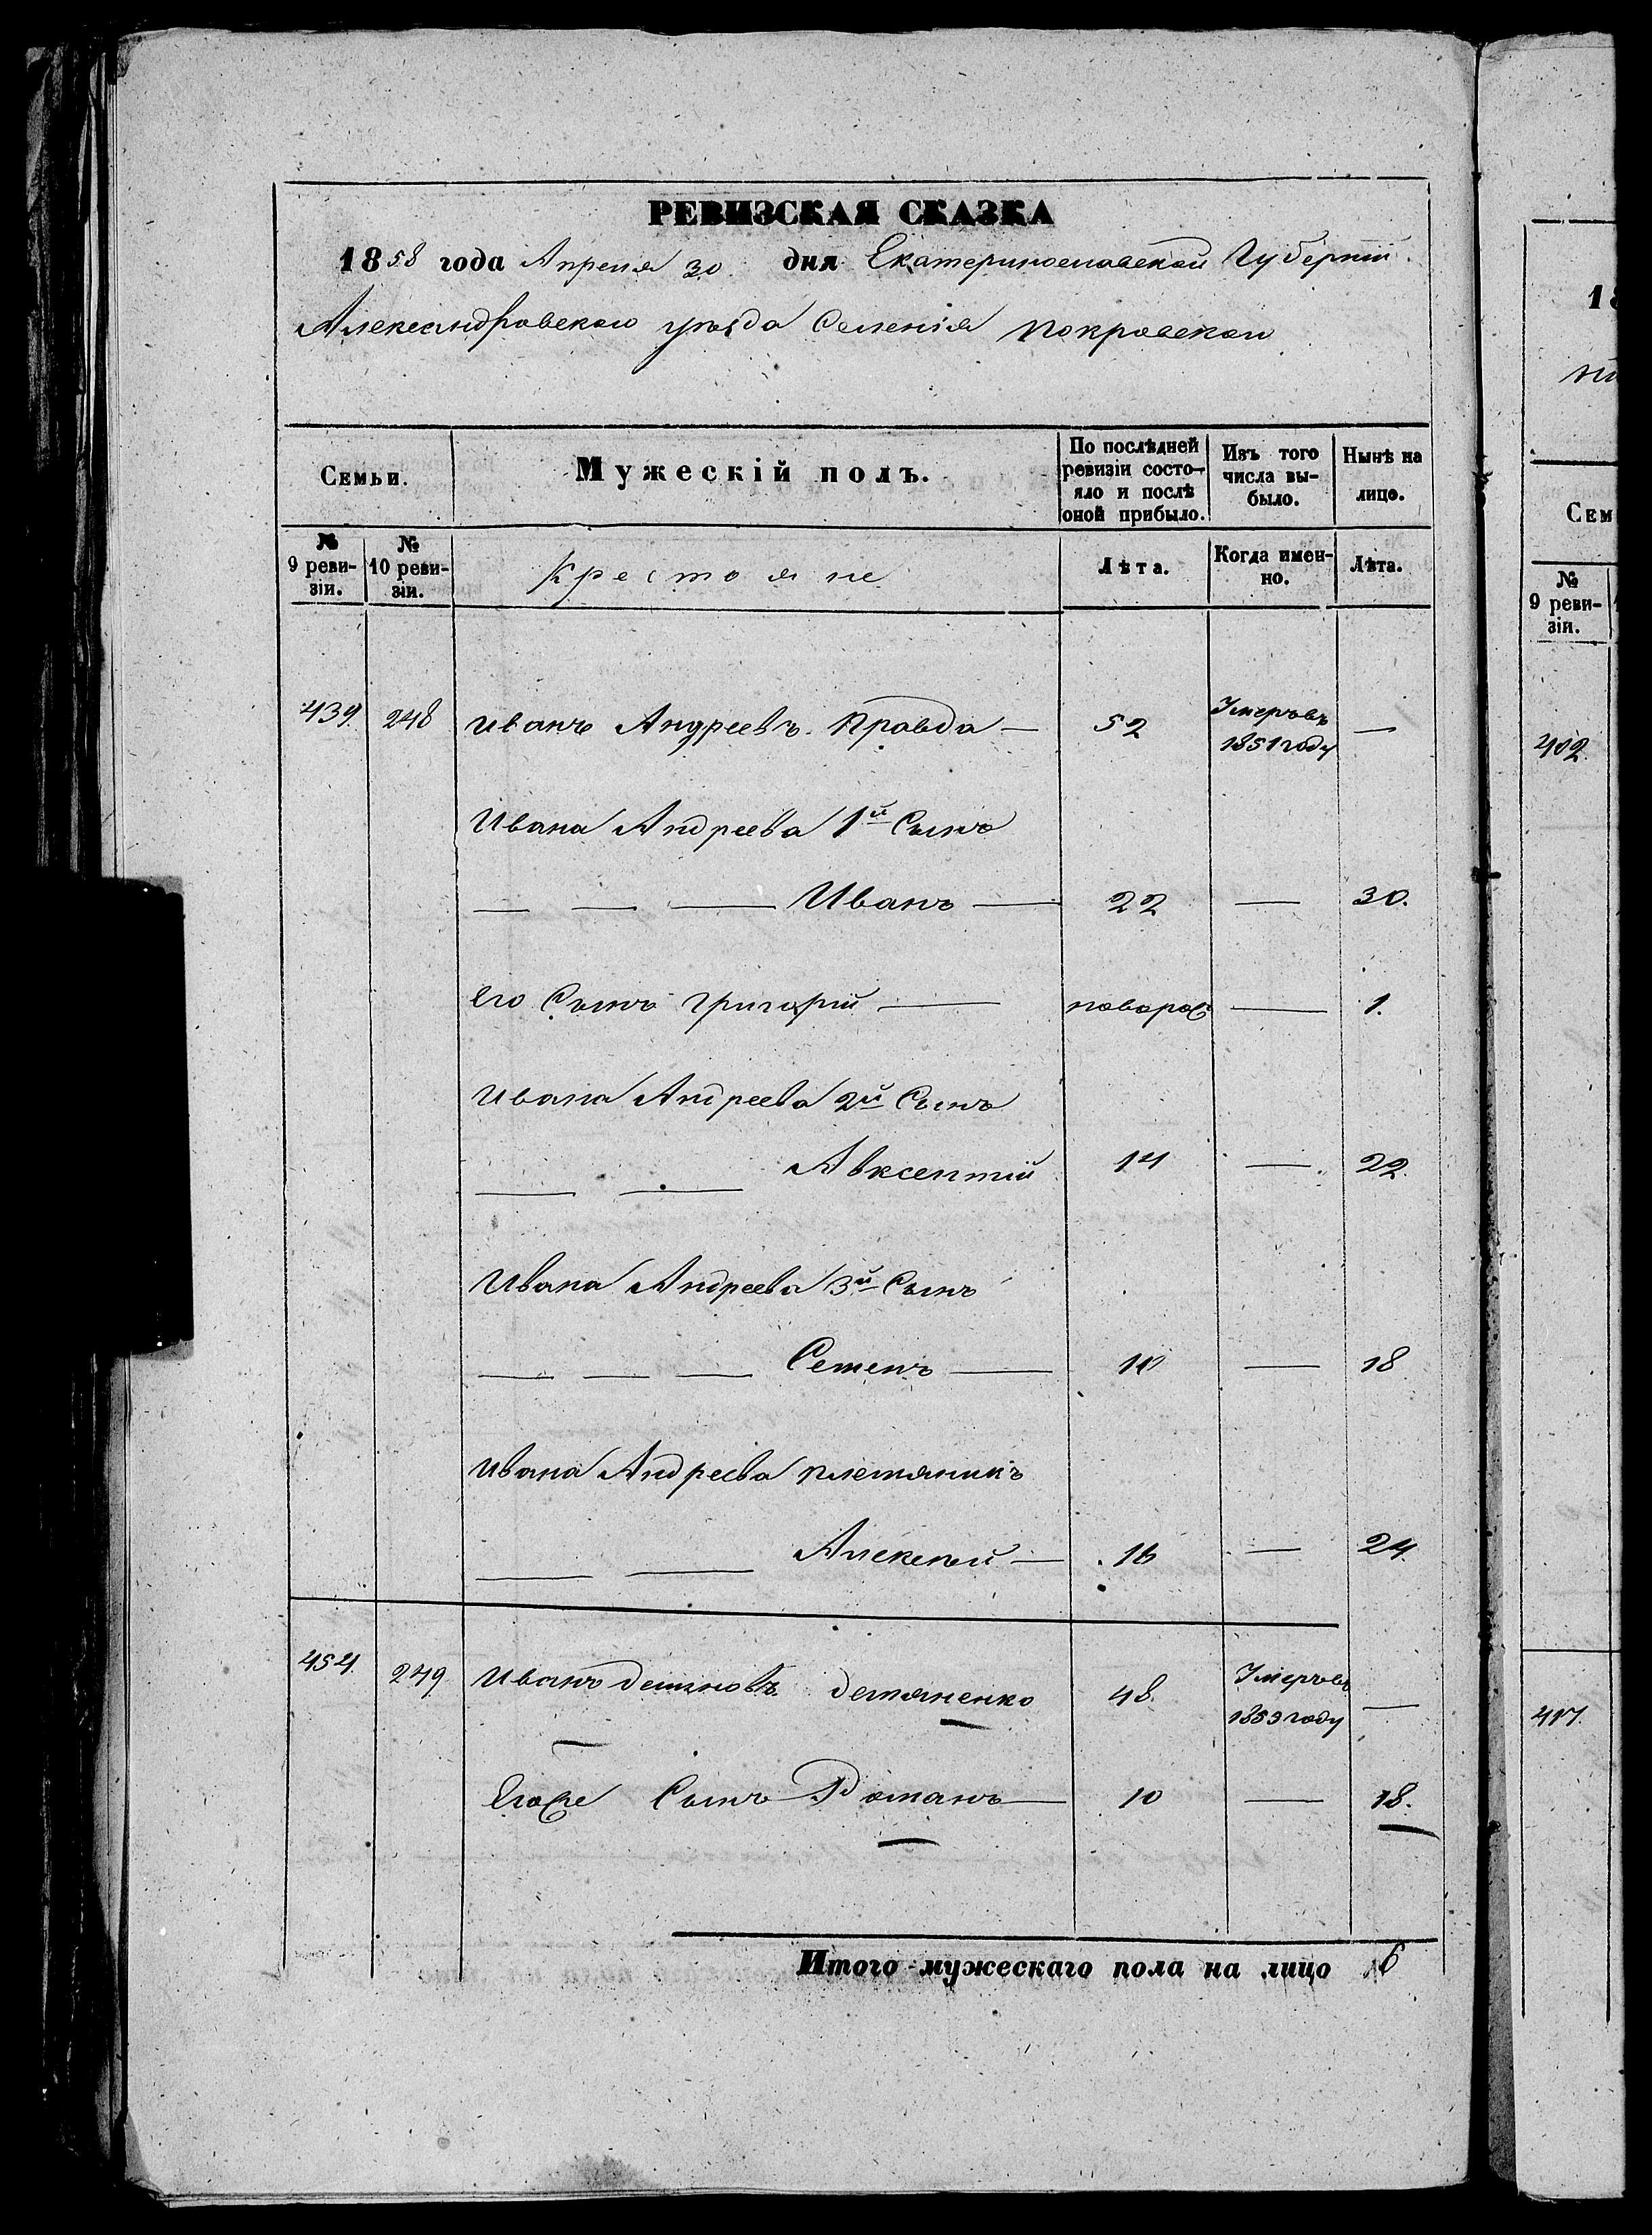 РЕВИЗСКАЯ СКАЗКА
1858 года Апреля 30 дня Екатеринославской Губернии
Александровского уезда Селенія Покровского
Семьи.
Мужескій полъ.
По послѣдней ревизіи состояло и послѣ оной прибыло.
Изъ того числа выбыло.
Нынѣ на лицо.
№ 9 ревизіи.
№ 10 ревизіи.
Крестояне
Лѣта.
Когда именно.
Лѣта.
439. 248 Иванъ Андреевъ Правда — 52 Умеръ въ 1851 году —
Ивана Андреева 1й Сынъ
— — — Иванъ — 22 — 30.
Его Сынъ Григорий — новорож — 1.
Ивана Андреева 2й Сынъ
— — Авксентий 14 — 22.
Ивана Андреева 3й Сынъ
— — — Семенъ — 10 — 18
Ивана Андреева племяникъ
— — Алексей — 16 — 24.
454. 249 Иванъ Демяненко 48. Умеръ въ 1853 году —
Сынъ Романъ — 10 — 18.
Итого мужескаго пола на лицо 6
18
Сем
№
9 реви-
зіи.
402.
417.